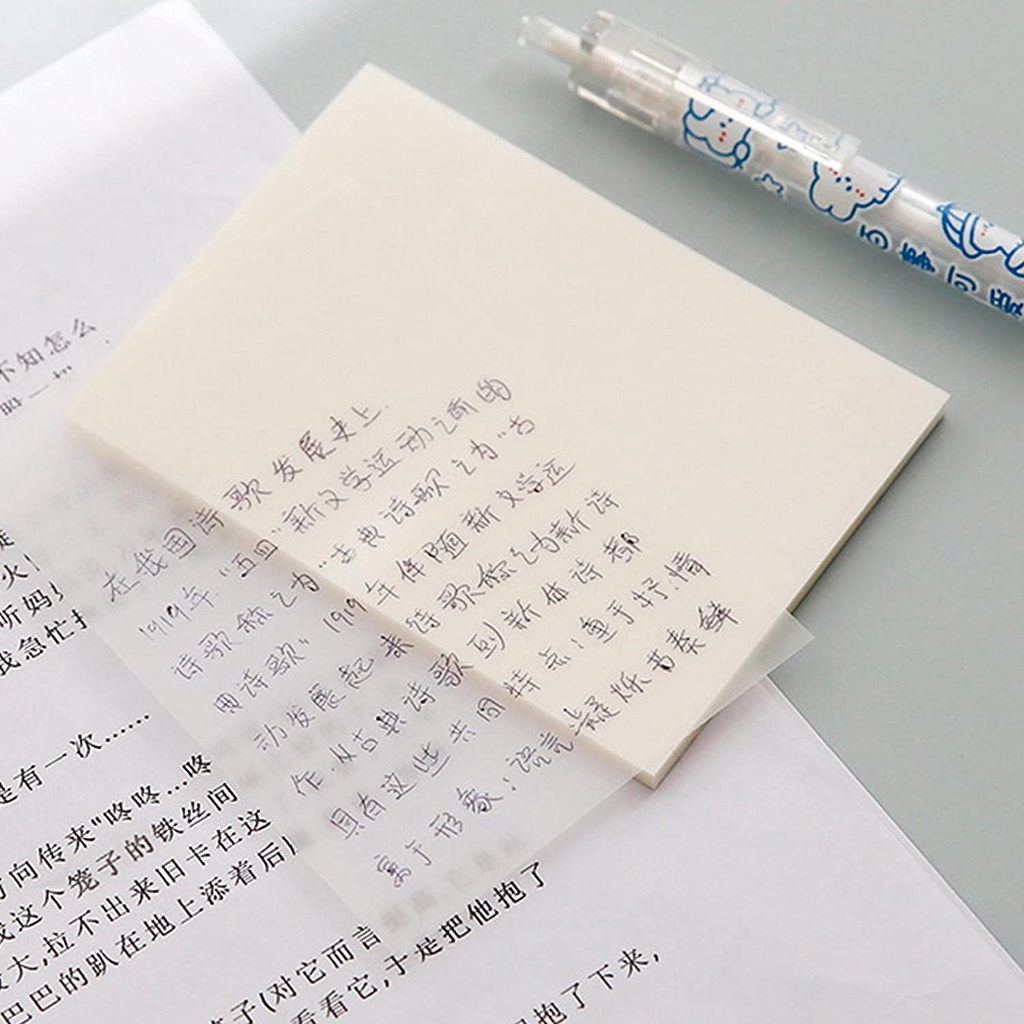 不知怎么
在我国诗歌发展史上.
1919年."五四"新文学运动之前的
诗歌称之为"古典诗歌之为"古
典诗歌。1919年伴随新文学运
动发展起来诗歌称之为新诗
作.从古典诗歌到新体诗都
具有这些共同特点:重于抒情
富于形象:语言凝炼节奏鲜
火
听妈!
我急忙
是有一次……
方向传来"咚咚…咚
我这个笼子的铁丝间
大,拉不出来旧卡在这
巴巴的趴在地上添着后
子(对它而言
看看它,于是把他抱了
抱了下来,
事可爱